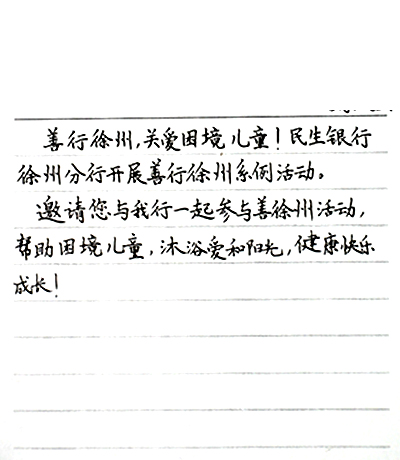 善行徐州,关爱困境儿童!民生银行
徐州分行开展善行徐州系例活动。
邀请您与我行一起参与善徐州活动,
帮助困境儿童,沐浴爱和阳光,健康快乐
成长!